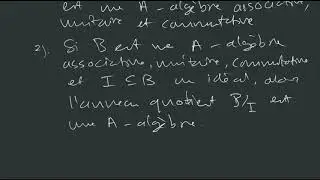 est une A-algèbre associative,
unitaire et commutative
2). Si B est une A-algèbre
associative, unitaire, commutative
et I ⊆ B un idéal, alors
l'anneau quotient B/I est
une A-algèbre.